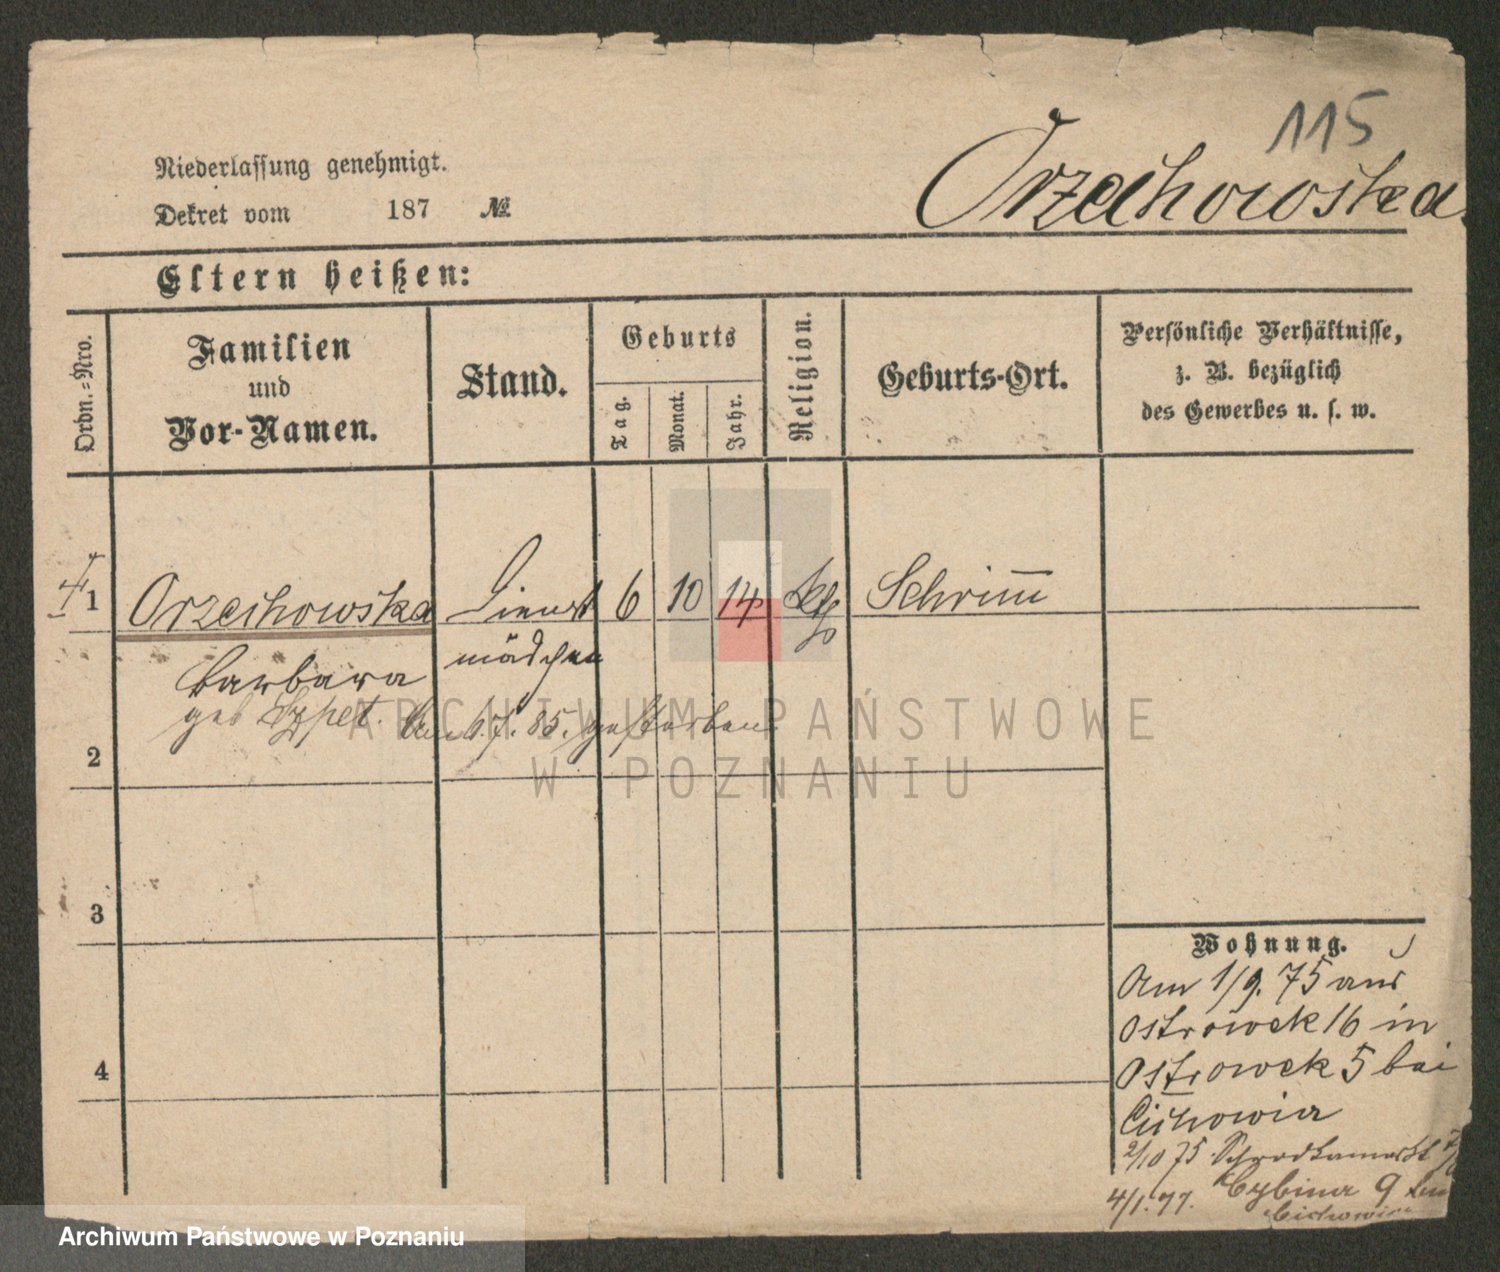 115
Niederlassung genehmigt.
Orzechowska
Dekret vom 187 №
Eltern heißen:
Ordn.=Nro.
Familien
und
Vor-Namen.
Stand.
Geburts
Tag.
Monat.
Jahr.
Religion.
Geburts-Ort.
Persönliche Verhältnisse,
z. B. bezüglich
des Gewerbes u. s. w.
1 Orzechowska Dienst 6 10 14 kth Schrim̅
Barbara mädchen
geb Szpet. Am 6.7.85. gestorben.
2
3
4
Wohnung.
Am 1/9. 75 aus
Ostrowek 16 in
Ostrowek 5 bei
Cichowicz
2/10 75 Schrodkamarkt
4/1.77. Cybina 9 bei
Cichowicz
ARCHIWUM PAŃSTWOWE
W POZNANIU
Archiwum Państwowe w Poznaniu